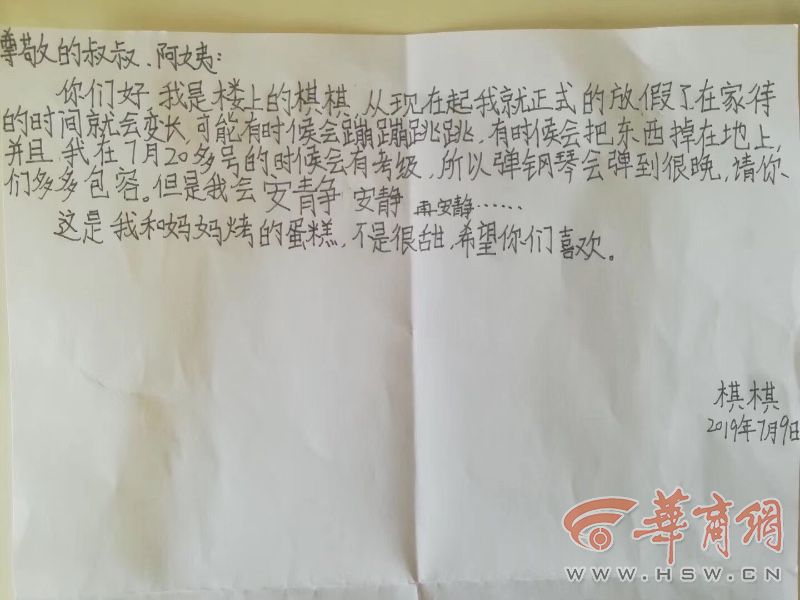 尊敬的叔叔、阿姨：
你们好,我是楼上的棋棋,从现在起我就正式的放假了在家待
的时间就会变长,可能有时候会蹦蹦跳跳,有时候会把东西掉在地上,
并且,我在7月20多号的时候会有考级,所以弹钢琴会弹到很晚,请你
们多多包容。但是我会安青争 安静 再安静……
这是我和妈妈烤的蛋糕,不是很甜,希望你们喜欢。
棋棋
2019年7月9日
華商網
WWW.HSW.CN